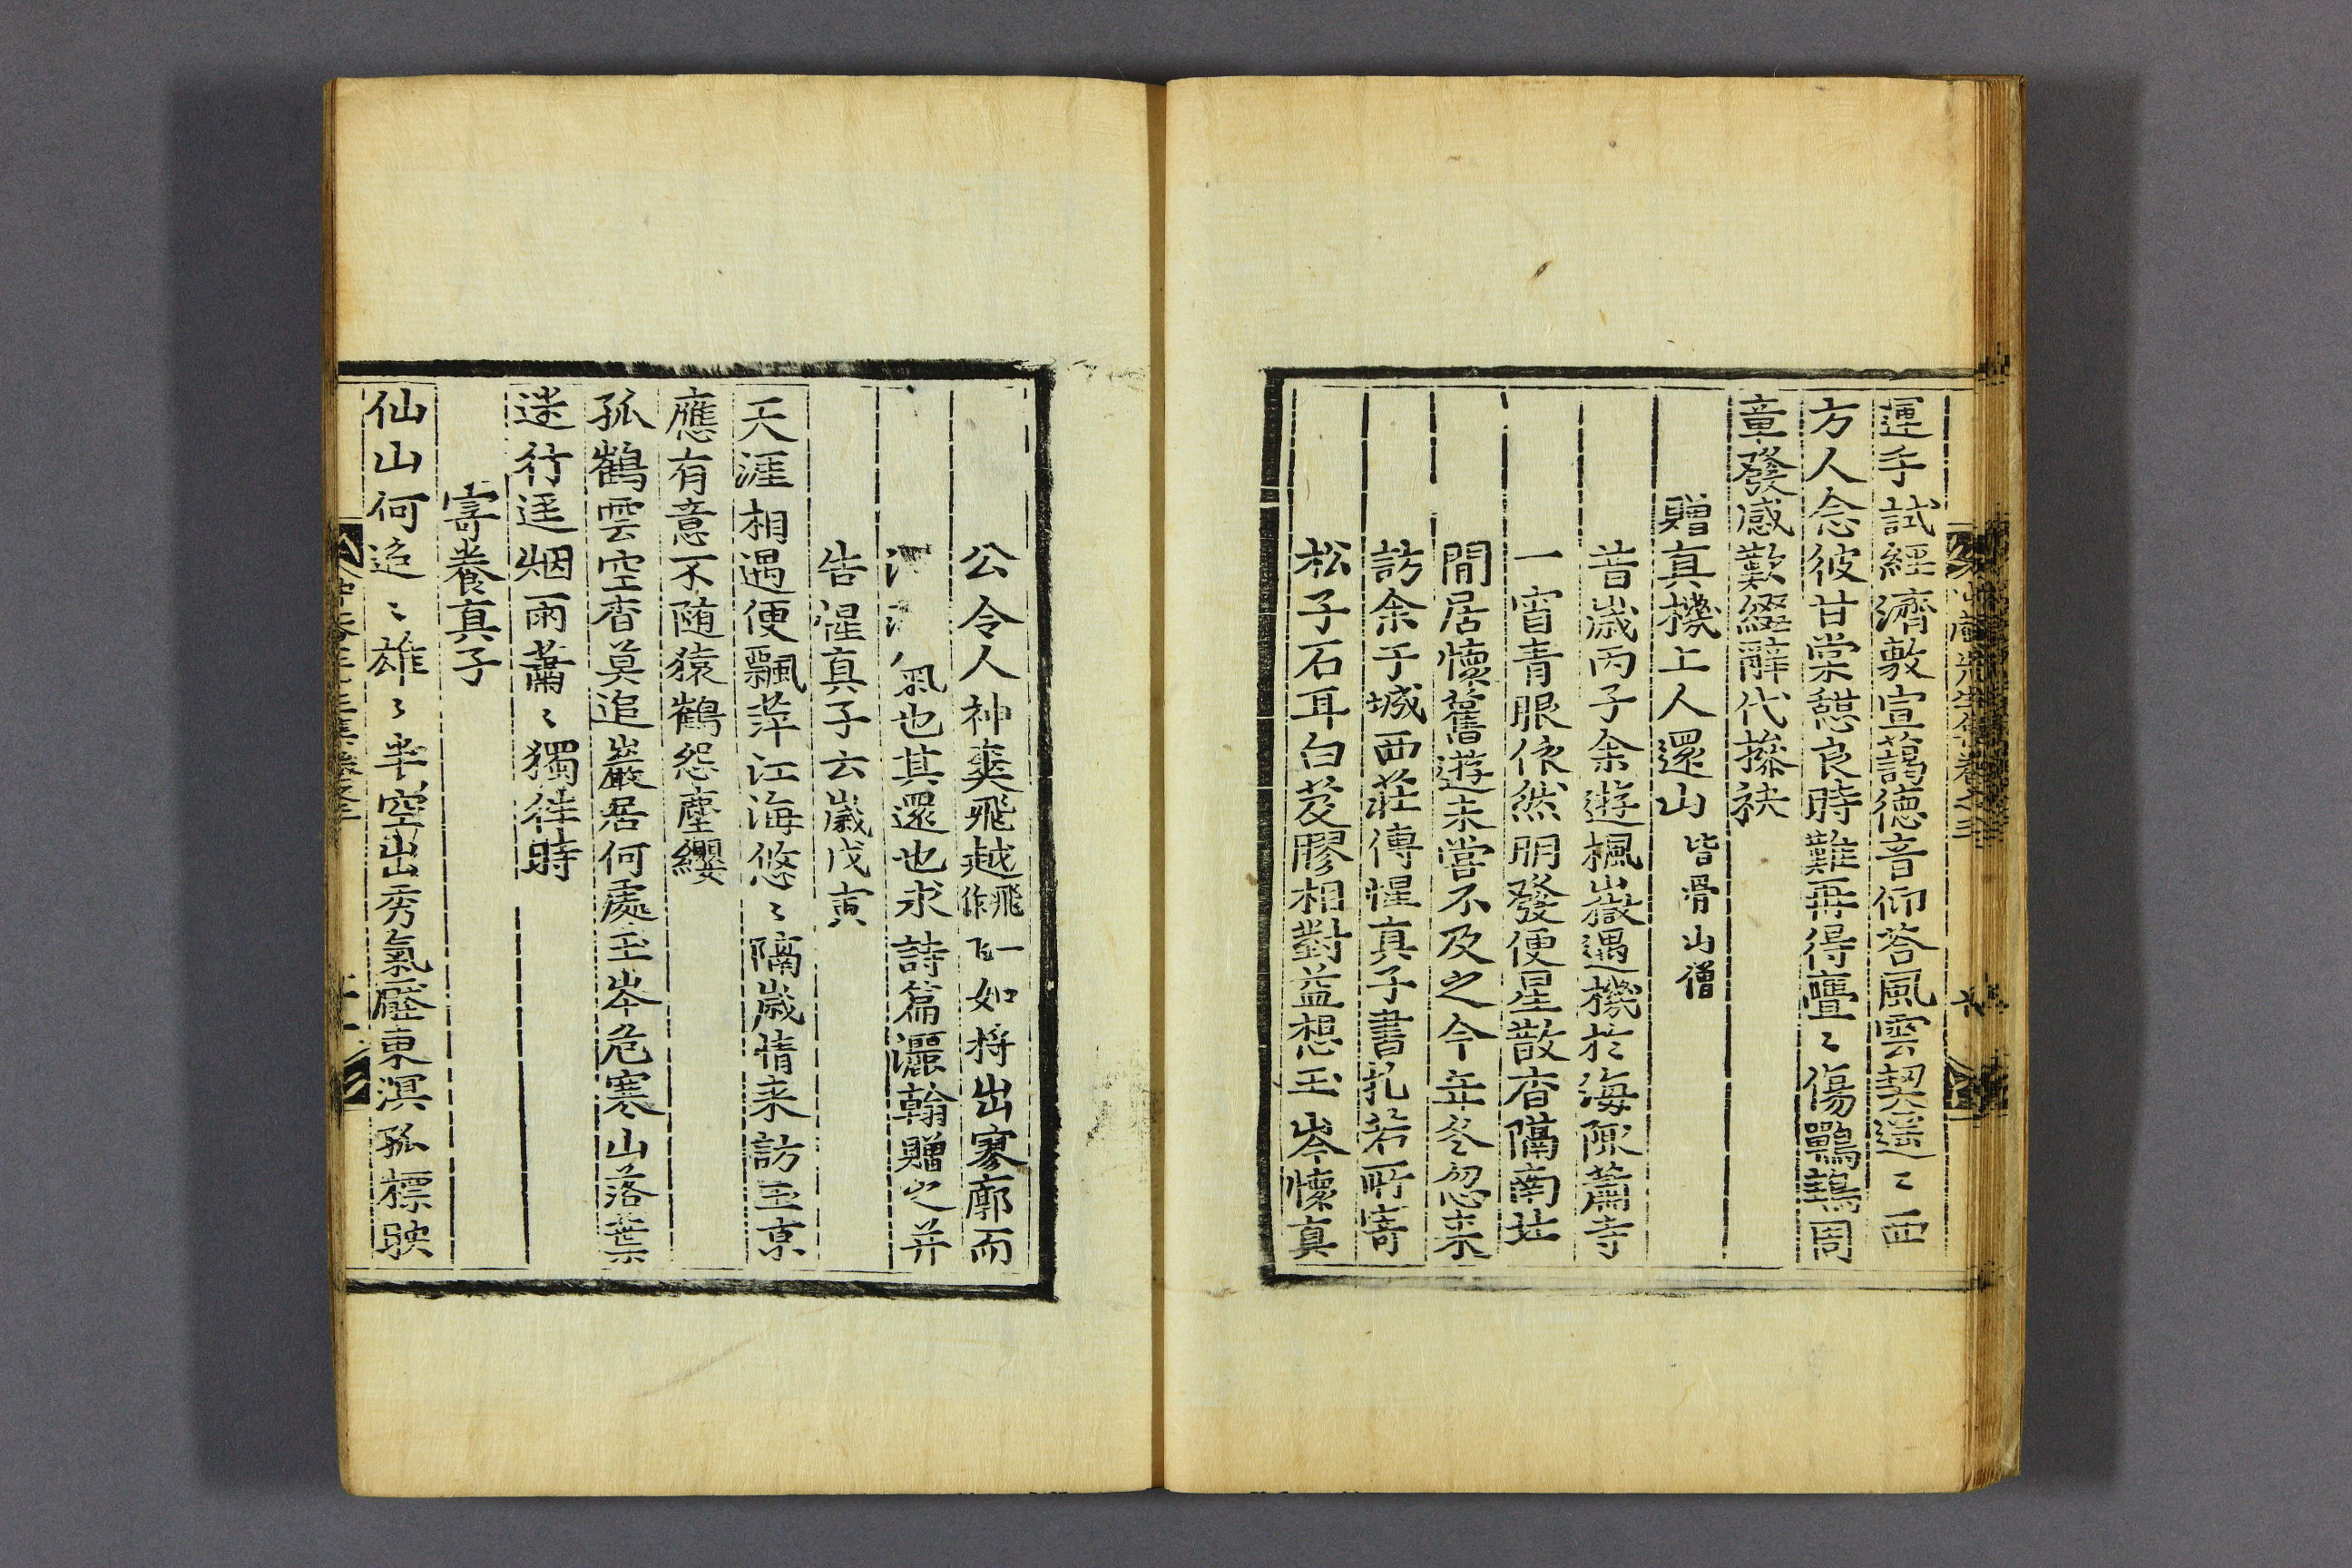 運手試經濟敷宣藹德音仰答風雲契遥〻一西
方人念彼甘棠憩良時難再得亹〻傷鸎鵡周
章發感歎綴辭代摻袂
贈真機上人還山 皆骨山僧
昔歲丙子余遊楓嶽遇機於海陬蕭寺
一宵青眼依然朋發便星散杳隔南北
閒居懷舊遊未嘗不及之今年冬忽来
訪余于城西莊傳惺真子書札若所寄
松子石耳白芨膠相對益想玉岑懷真
公令人神爽飛越飛一作飞如將出寥廓而
氣也其還也求詩篇灑翰贈之并
告惺真子云歲戊寅
天涯相遇便飄萍江海悠〻隔歲情来訪玉京
應有意不随猿鶴怨塵纓
孤鶴雲空杳莫追巖居何處玉岑危寒山落葉
迷行逕烟雨蕭〻獨往時
寄養真子
仙山何迢〻雄〻半空出秀氣壓東溟孤標映